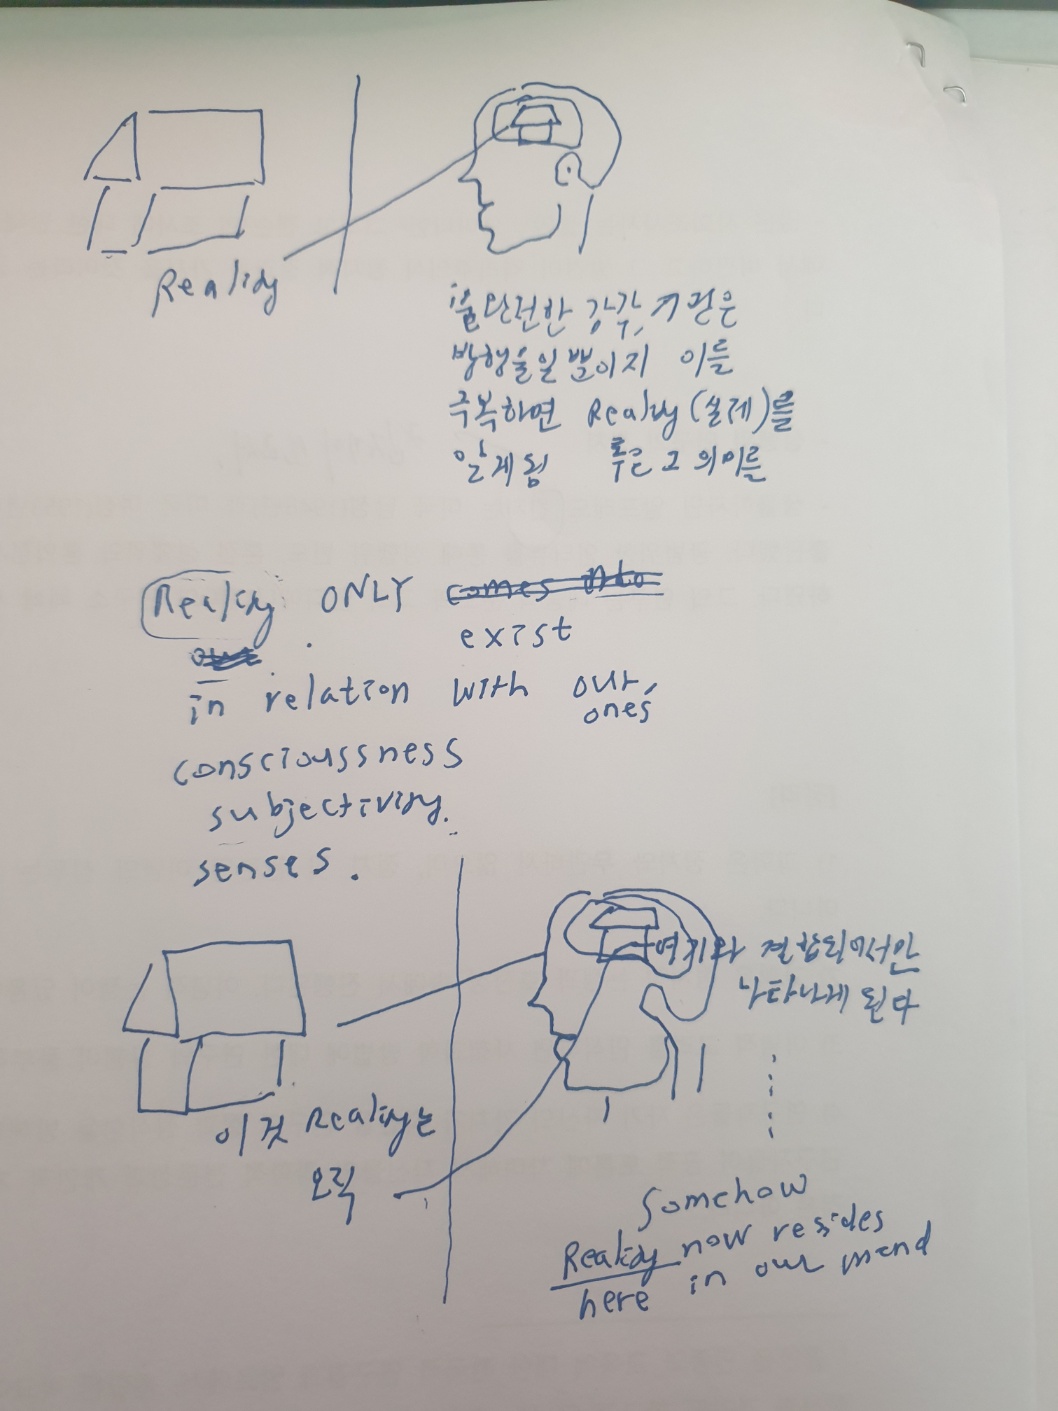 Reality
불완전한 감각, 기관은
방해물일 뿐이지 이를
극복하면 Reality (실제)를
알게됨 혹은 그 의미를
Reality ONLY comes into
exist
in relation with our,
ones,
conscioussness
subjectivity.
senses.
여기와 결합되어서만
나타나게 된다
이것 Reality는
오직
Somehow
Reality now resides
here in our mend